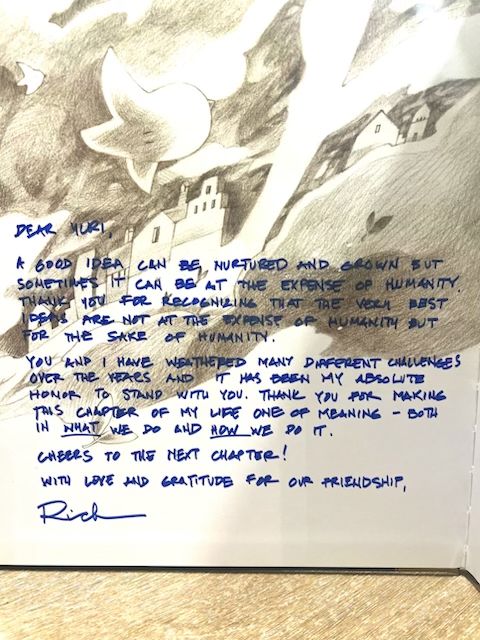 DEAR YURI,
A GOOD IDEA CAN BE NURTURED AND GROWN BUT
SOMETIMES IT CAN BE AT THE EXPENSE OF HUMANITY.
THANK YOU FOR RECOGNIZING THAT THE VERY BEST
IDEAS ARE NOT AT THE EXPENSE OF HUMANITY BUT
FOR THE SAKE OF HUMANITY.
YOU AND I HAVE WEATHERED MANY DIFFERENT CHALLENGES
OVER THE YEARS AND IT HAS BEEN MY ABSOLUTE
HONOR TO STAND WITH YOU. THANK YOU FOR MAKING
THIS CHAPTER OF MY LIFE ONE OF MEANING – BOTH
IN WHAT WE DO AND HOW WE DO IT.
CHEERS TO THE NEXT CHAPTER!
WITH LOVE AND GRATITUDE FOR OUR FRIENDSHIP,
Rich